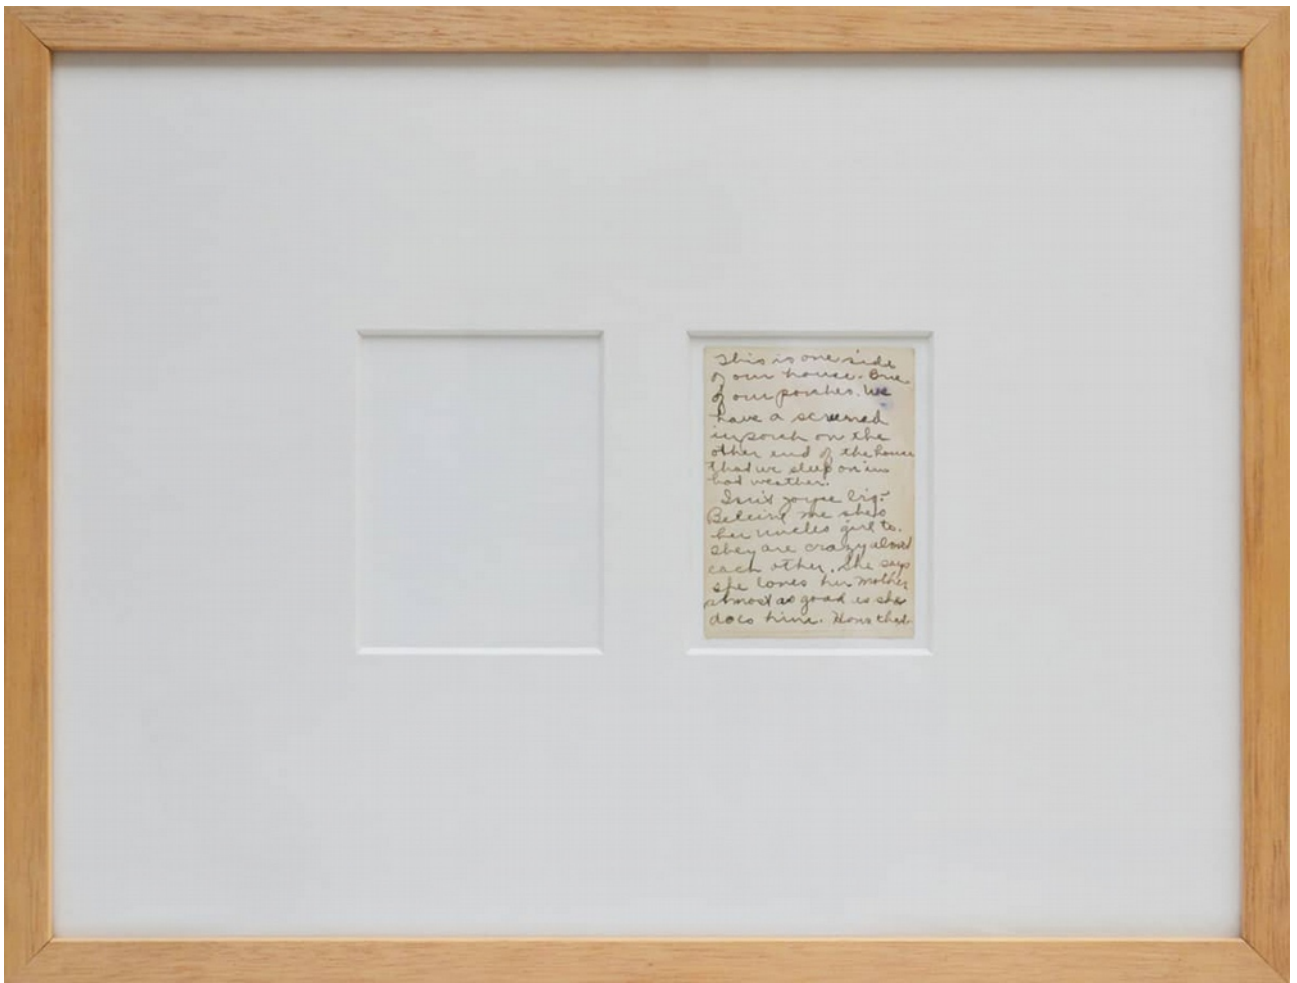 This is one side
of our house. One
of our porches. We
have a screened
in porch on the
other end of the house
that we sleep on in
bad weather.
Isn't big?
Believe me she's
her uncles girl to.
they are crazy about
each other. She says
she loves her mother
almost as good as she
does him. Hows that